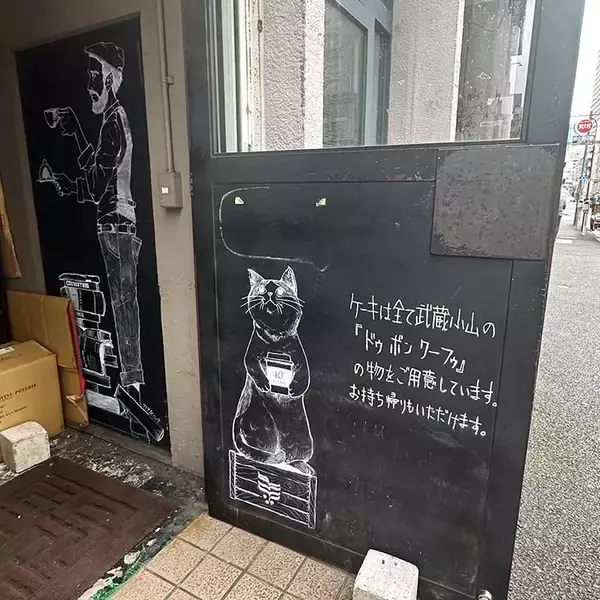 ケーキは全て武蔵小山の
『ドゥ ボン クーフゥ』
の物をご用意しています。
お持ち帰りもいただけます。